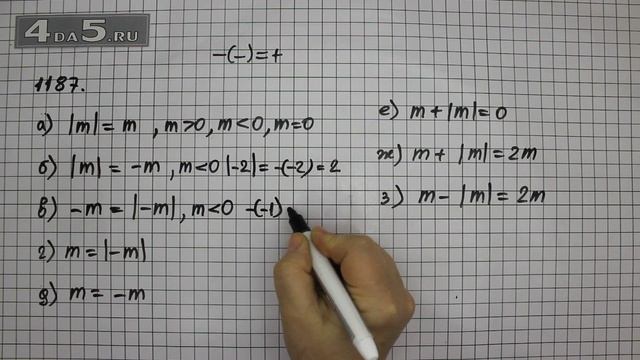 4DA5.RU
-(-)=+
1187.
а) |m| = m , m>0, m<0, m=0
б) |m| = -m , m<0 |-2| = -(-2) = 2
в) -m = |-m| , m<0 -(-1)
г) m = |-m|
д) m = -m
е) m + |m| = 0
ж) m + |m| = 2m
з) m - |m| = 2m